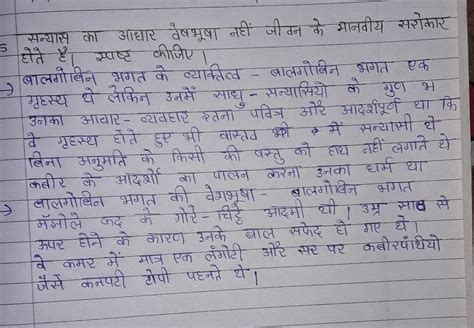 5 सन्यास का आधार वेषभूषा नहीं जीवन के मानवीय सरोकार
होते है। स्पष्ट कीजिए।
→ बालगोबिन भगत के व्यक्तित्व - बालगोबिन भगत एक
गृहस्थ थे लेकिन उनमें साधु - सन्यासियो के गुण भ
उनका आचार - व्यवहार इतना पवित्र और आदर्शपूर्ण था कि
वे गृहस्थ होते हुए भी वास्तव में सन्यासी थे
बिना अनुमति के किसी की वस्तु को हाथ नहीं लगाते थे
कबीर के आदर्शो का पालन करना उनका धर्म था
→ बालगोबिन भगत की वेशभूषा - बालगोबिन भगत
मँझोले कद के गोरे - चिट्टे आदमी थी। उम्र साठ से
ऊपर होने के कारण उनके बाल सफेद हो गए थे।
वे कमर में मात्र एक लंगोटी और सर पर कबीरपंथियो
जैसे कनपटी टोपी पहनते थे।